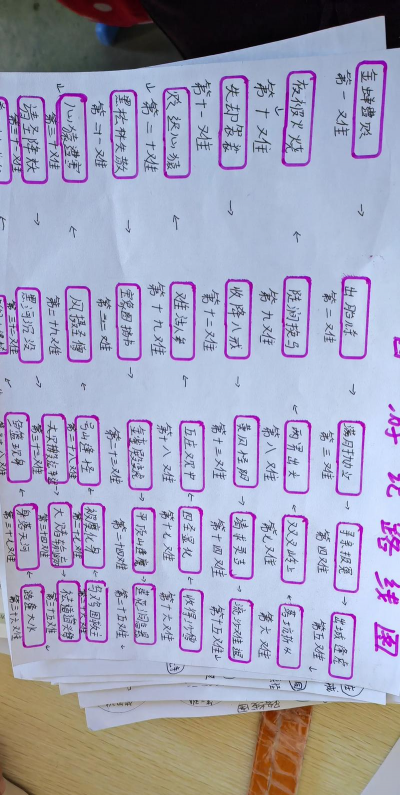 西游记路线图
金蝉遭贬
第一难
出胎几杀
第二难
满月抛江
第三难
寻亲报冤
第四难
出城逢虎
第五难
落坑折从
第六难
双叉岭上
第七难
两界山头
第八难
陡涧换马
第九难
夜被火烧
第十难
失却袈裟
第十一难
收降八戒
第十二难
黄风怪阻
第十三难
请求灵吉
第十四难
流沙难渡
第十五难
收得沙僧
第十六难
四圣显化
第十七难
五庄观中
第十八难
难活人参
第十九难
贬退心猿
第二十难
黑松林失散
第二十一难
宝象国捎书
第二十二难
金銮殿变虎
第二十三难
平顶山逢魔
第二十四难
莲花洞高悬
第二十五难
乌鸡国救主
被魔化身
号山逢怪
第二十八难
风摄圣僧
第二十九难
心猿遭害
第三十难
请圣降妖
第三十一难
黑河沉没
第三十二难
搬运车迟
第三十三难
大赌输赢
第三十四难
祛道兴僧
第三十五难
路逢大水
第三十六难
身落天河
第三十七难
鱼篮现身